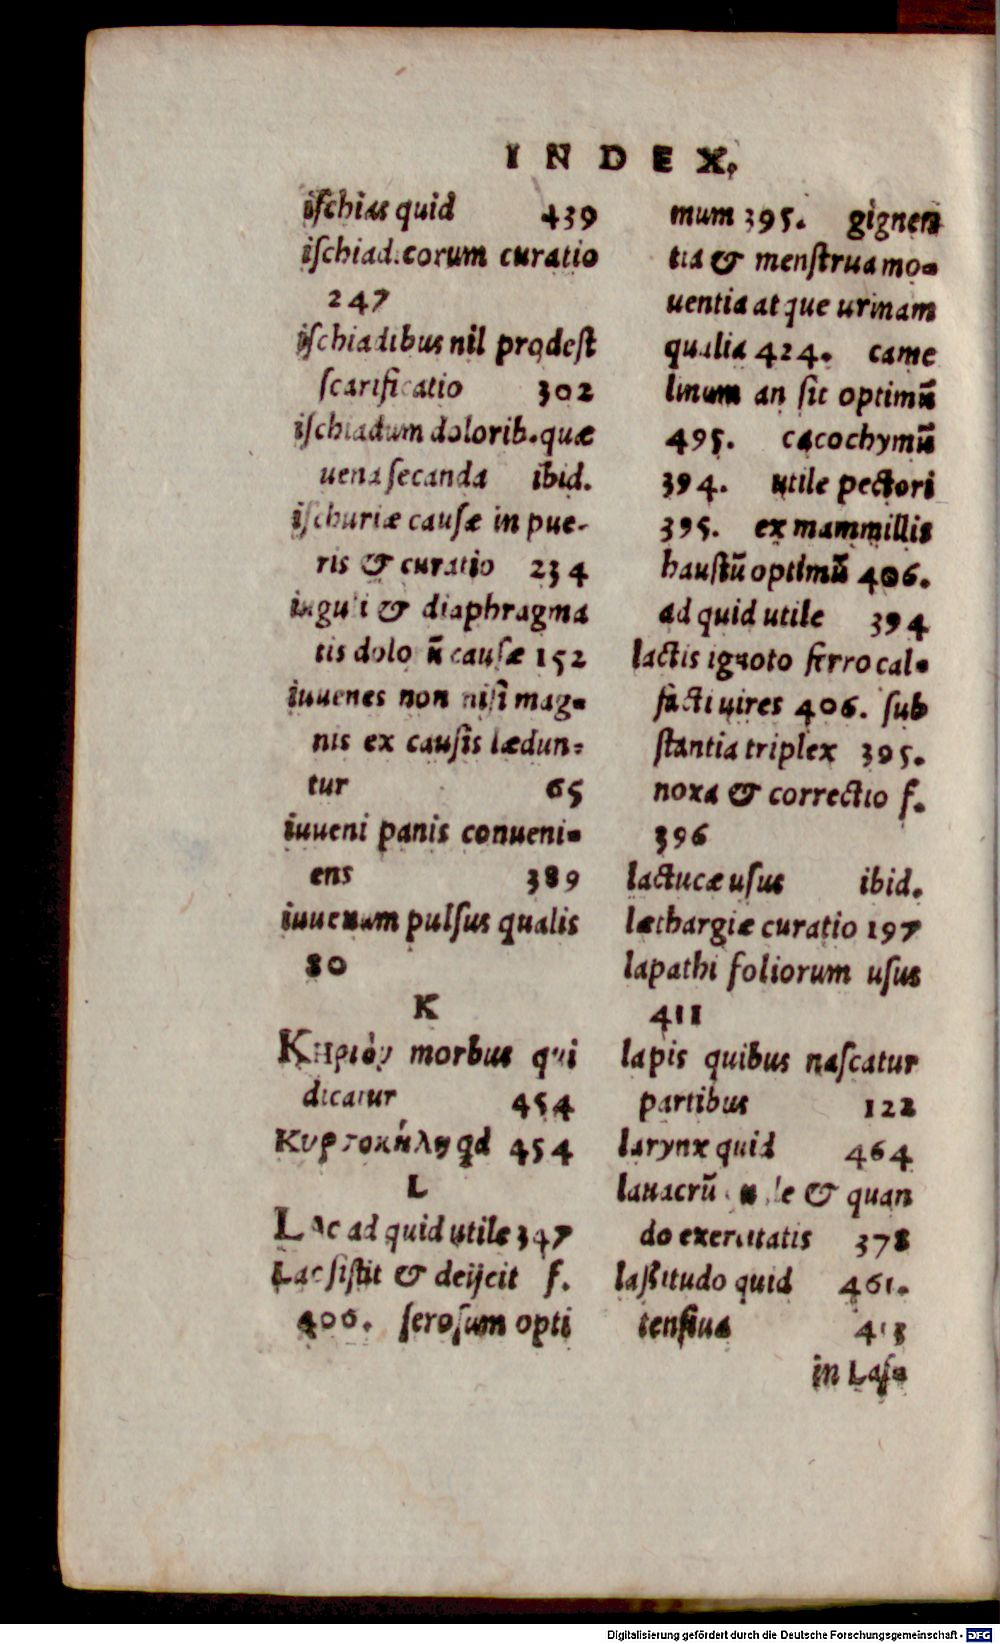 INDEX.
iſchias quid 439
iſchiad.corum curatio
247
iſchiadibus nil prodeſt
ſcarificatio 302
iſchiadum dolorib. quæ
uena ſecanda ibid.
iſchuriæ cauſæ in pue-
ris & curatio 234
& diaphragma
tis dolo cauſæ 152
iuuenes non niſi mag=
nis ex cauſis lædun=
tur 65
iuueni panis conueni=
ens 389
iuuenum pulſus qualis
80
K
Κηριόν morbus qui
dicatur 454
Κυρτοκήλη qd 454
L
Lac ad quid utile 347
Lac ſiſtit & deijcit f.
406. ſeroſum opti
mum 395. gignen
tia & menſtrua mo=
uentia atque urinam
qualia 424. came
linum an ſit optimū
495. cacochymū
394. utile pectori
395. ex mammillis
hauſtū optimū 406.
ad quid utile 394
lactis ignoto ferro cal=
facti uires 406. ſub
ſtantia triplex 395.
noxa & correctio f.
396
lactucæ uſus ibid.
læthargiæ curatio 197
lapathi foliorum uſus
411
lapis quibus naſcatur
partibus 122
larynx quid 464
lauacrū & quan
do exercitatis 378
laßitudo quid 461.
tenſiua 413
in Laſ=
Digitalisierung gefördert durch die Deutsche Forschungsgemeinschaft - DFG